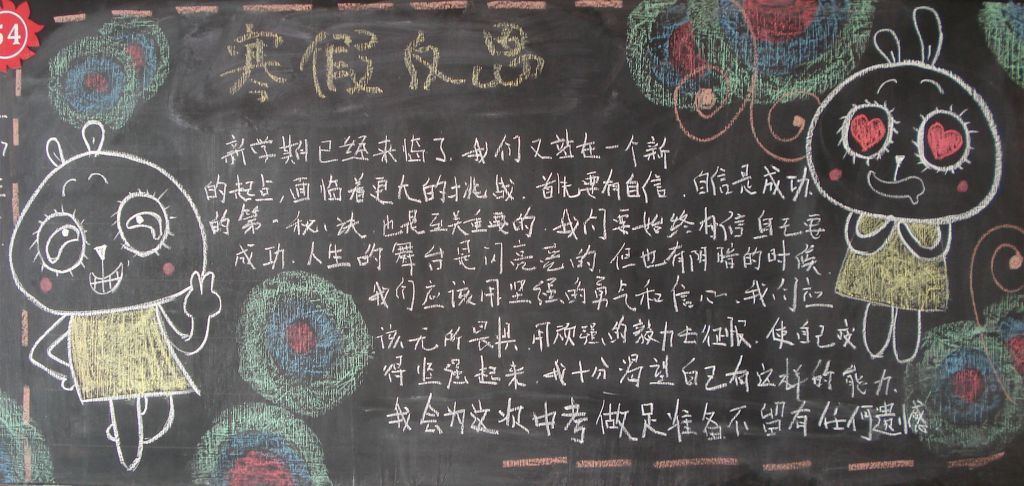 54
寒假反思
新学期已经来临了.我们又站在一个新
的起点,面临着更大的挑战.首先要有自信 自信是成功
的第一秘诀.也是至关重要的.我们要始终相信自己要
成功.人生的舞台是闪亮亮的.但也有阴暗的时候.
我们应该用坚强的勇气和信心.我们应
该无所畏惧.用顽强的毅力去征服.使自己变
得坚强起来.我十分渴望自己有这样的能力.
我会为这次中考做足准备不留有任何遗憾